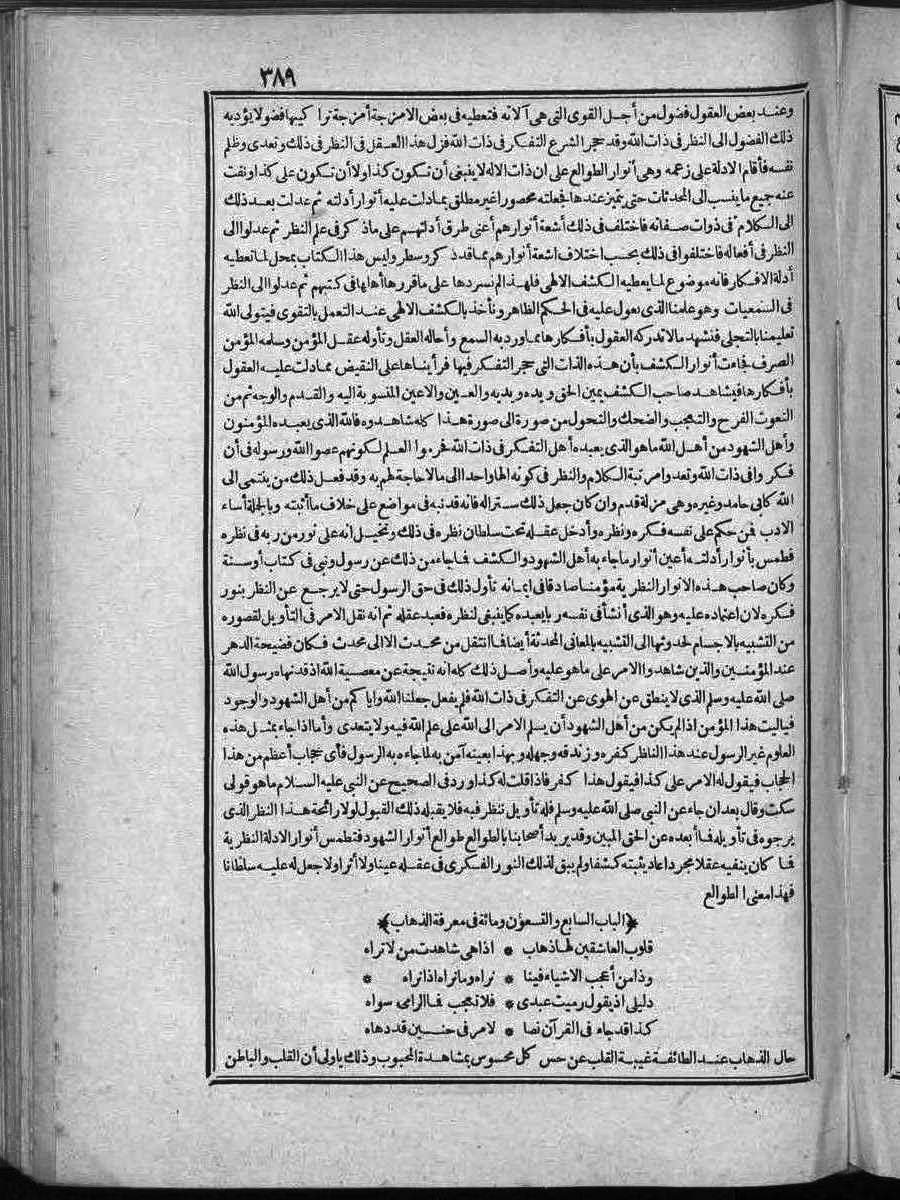 ٣٨٩
وعند بعض العقول فضول من أجل القوى التى هى آلاته فتعطيه فى بعض الامزجة أمزجة تراكيبها فضولا يؤديه
ذلك الفضول الى النظر فى ذات الله وقد حجر الشرع التفكر فى ذات الله فزل هذا العقل فى النظر فى ذلك وتعدى وظلم
نفسه فأقام الادلة على زعمه وهى أنوار الطوالع على ان ذات الاله لا ينبغى أن تكون كذا ولا أن تكون على كذا ونفت
عنه جميع ما ينسب الى المحدثات حتى يتميز عندها فجعلته محصورا غير مطلق بما دلت عليه أنوار أدلته ثم عدلت بعد ذلك
الى الكلام فى ذوات صفاته فاختلف فى ذلك أشعة أنوارهم أعنى طرق أدلتهم على ما ذكر فى علم النظر ثم عدلوا الى
النظر فى أفعاله فاختلفوا فى ذلك بحسب اختلاف أشعة أنوارهم مما قد ذكر وسطر وليس هذا الكتاب بمحل لما تعطيه
أدلة الافكار فانه موضوع لما يعطيه الكشف الالهى فلهذا لم نسردها على ما قررها أهلها فى كتبهم ثم عدلوا الى النظر
فى السمعيات وهو علمنا الذى يعول عليه فى الحكم الظاهر ونأخذ بالكشف الالهى عند التعمل بالتقوى فيتولى الله
تعليمنا بالتجلى فنشهد ما لا تدركه العقول بأفكارها مما ورد به السمع وأحاله العقل وتأوله عقل المؤمن وسلمه المؤمن
الصرف فجاءت أنوار الكشف بأن هذه الذات التى حجر التفكر فيها فرأيناها على النقيض مما دلت عليه العقول
بأفكارها فيشاهد صاحب الكشف يمين الحق ويده ويديه والعين والاعين المنسوبة اليه والقدم والوجه ثم من
النعوت الفرح والتعجب والضحك والتحول من صورة الى صورة هذا كله شاهدوه فالله الذى يعبده المؤمنون
وأهل الشهود من أهل الله ما هو الذى يعبده أهل التفكر فى ذات الله فحرموا العلم لكونهم عصوا الله ورسوله فى أن
فكروا فى ذات الله وتعدوا مرتبة الكلام والنظر فى كونه الها واحدا الى ما لا حاجة لهم به وقد فعل ذلك من ينتمى الى
الله كابى حامد وغيره وهى مزلة قدم وان كان جعل ذلك سترا له فانه قد نبه فى مواضع على خلاف ما أثبته وبالجملة أساء
الادب فمن حكم على نفسه فكره ونظره وأدخل عقله تحت سلطان نظره فى ذلك وتخيل انه على نور من ربه فى نظره
فطمس بأنوار أدلته أعين أنوار ما جاء به أهل الشهود والكشف فما جاء من ذلك عن رسول ونبى فى كتاب أو سنة
وكان صاحب هذه الانوار النظرية مؤمنا صادقا فى ايمانه تأول ذلك فى حق الرسول حتى لا يرجع عن النظر بنور
فكره لان اعتماده عليه وهو الذى أنشأ فى نفسه ربا يعبده كما ينبغى لنظره فعبد عقله ثم انه نقل الامر فى التأويل لقصوره
من التشبيه بالاجسام لحدوثها الى التشبيه بالمعانى المحدثة أيضا فما انتقل من محدث الا الى محدث فكان فضيحة الدهر
عند المؤمنين والذين شاهدوا الامر على ما هو عليه وأصل ذلك كله انه نتيجة عن معصية الله اذ قد نهاه رسول الله
صلى الله عليه وسلم الذى لا ينطق عن الهوى عن التفكر فى ذات الله فلم يفعل جعلنا الله واياكم من أهل الشهود والوجود
فياليت هذا المؤمن اذا لم يكن من أهل الشهود أن يسلم الامر الى الله على علم الله فيه ولا يتعدى وأما اذا جاء بمثل هذه
العلوم غير الرسول عند هذا الناظر كفره وزندقه وجهله وبهذا بعينه آمن به لما جاءه به الرسول فأى حجاب أعظم من هذا
الحجاب فيقول له الامر على كذا فيقول هذا كفر فاذا قلت له كذا ورد فى الصحيح عن النبى عليه السلام ما هو قولى
سكت وقال بعد ان جاء عن النبى صلى الله عليه وسلم فله تأويل ننظر فيه فلا يقبله ذلك القبول لولا رائحة هذا النظر الذى
يرجوه فى تأويله فما أبعده عن الحق المبين وقد يريد أصحابنا بالطوالع طوالع أنوار الشهود فتطمس أنوار الادلة النظرية
فما كان ينفيه عقلا مجردا عاد يثبته كشفا ولم يبق لذلك النور الفكرى فى عقله عينا ولا أثرا ولا جعل له عليه سلطانا
فهذا معنى الطوالع
﴿الباب السابع والتسعون ومائة فى معرفة الذهاب﴾
قلوب العاشقين لها ذهاب * اذا هى شاهدت من لا تراه
وذا من أعجب الاشياء فينا * نراه وما نراه اذا نراه *
دليلى اذ يقول رميت عبدى * فلا تعجب فما الرامى سواه
كذا قد جاء فى القرآن نصا * لامر فى حنين قد دهاه
حال الذهاب عند الطائفة غيبة القلب عن حس كل محسوس بمشاهدة المحبوب وذلك ياولى أن القلب والباطن